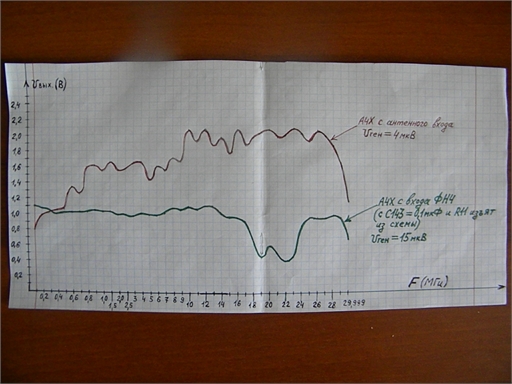 Uвых. (В)
2,4
2,2
2,0
1,8
1,6
1,4
1,2
1,0
0,8
0,6
0,4
0,2
АЧХ с антенного входа
Uген = 4мкВ
АЧХ с входа ФНЧ
(с С143 = 0,1мкФ и RH изъят
из схемы)
Uген = 15мкВ
F (МГц)
0,2 0,4 0,6 0,8 1,0 2,0 3 4 5 6 7 8 9 10 12 14 16 18 20 22 24 26 28 29,999
1,5 2,5